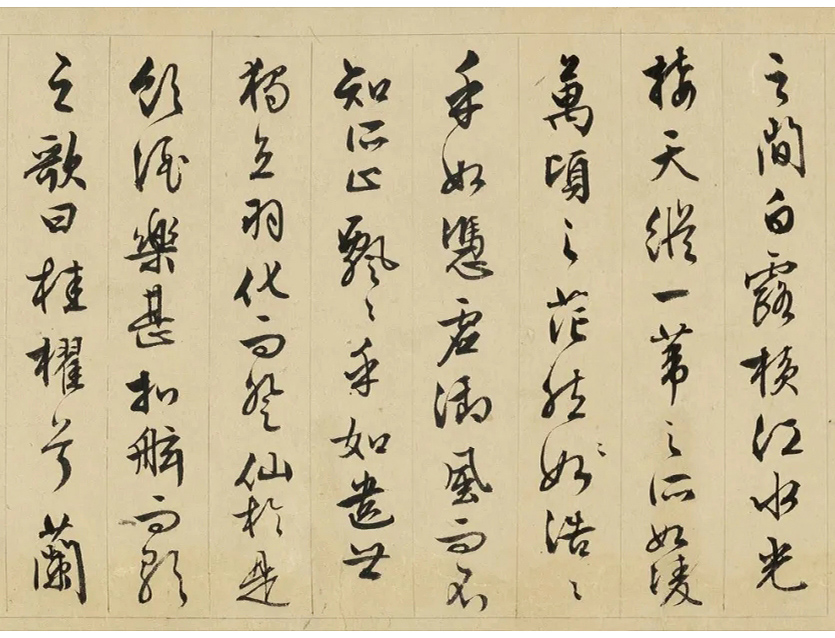 之間白露橫江水光
接天縱一葦之所如陵
萬頃之茫然浩〻
乎如憑虛御風而不
知所止飄〻乎如遺世
獨立羽化而登仙於是
飲酒樂甚扣舷而歌
之歌曰桂櫂兮蘭